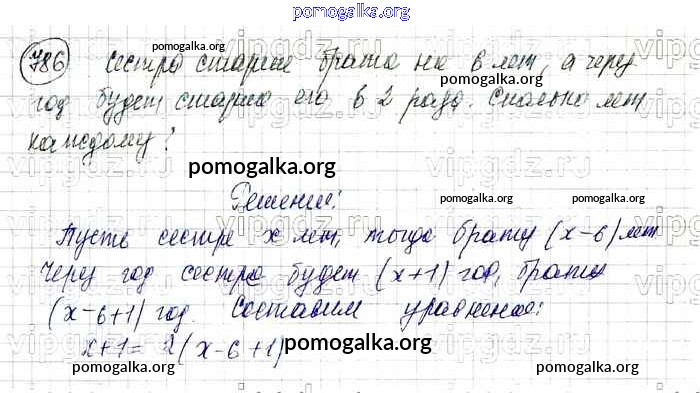 pomogalka.org
786 Сестра старше брата на 6 лет, а через
pomogalka.org pomogalka.org
год будет старше его в 2 раза. Сколько лет
каждому?
pomogalka.org
vipgdz.ru
Решение:
pomogalka.org pomogalka.org
Пусть сестре x лет, тогда брату (x-6) лет
Через год сестре будет (x+1) год, брату
(x-6+1) год. Составим уравнение:
x+1=2(x-6+1)
pomogalka.org
pomogalka.org pomogalka.org pomogalka.org